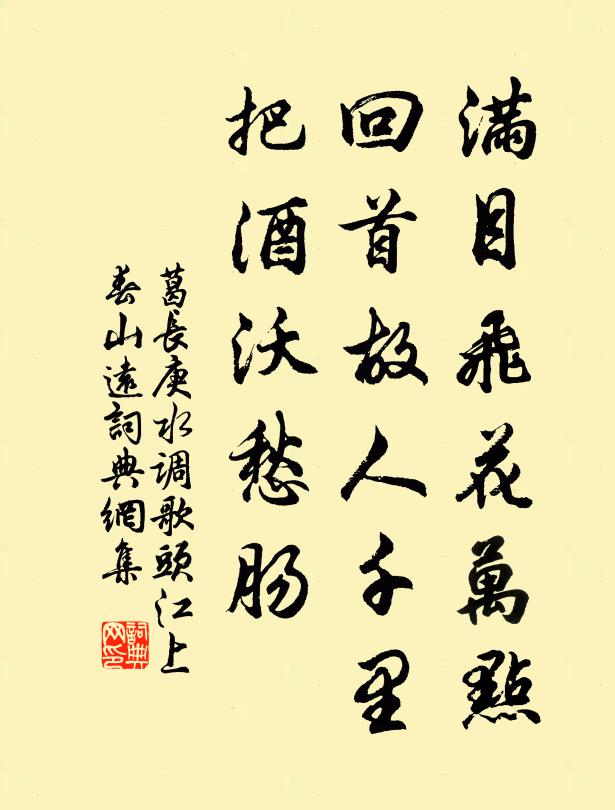 滿目飛花萬點
回首故人千里
把酒沃愁腸
葛長庚水調歌頭江上
春山遠詞典網集
詞典網印